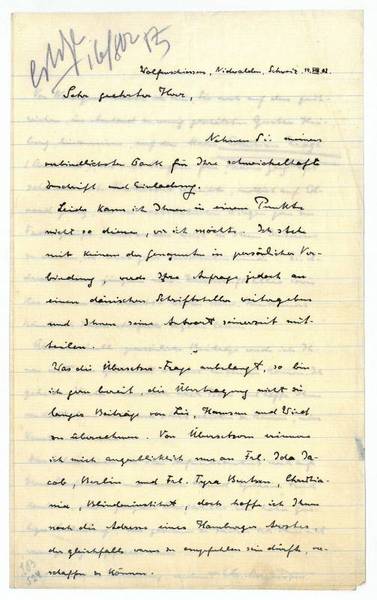 Wolfenschiessen, Nidwalden, Schweiz, 19.VIII.02.
Sehr geehrter Herr,
Nehmen Sie meinen
verbindlichsten Dank für Ihre schmeichelhafte
Zuschrift und Einladung.
Leider kann ich Ihnen in einem Punkte
nicht so dienen, wie ich möchte. Ich stehe
mit keinem der Genannten in persönlicher Ver-
bindung, werde Ihre Anfrage jedoch an
einen dänischen Schriftsteller weitergeben
und Ihnen seine Antwort seinerzeit mit-
teilen.
Was die Übersetzer-Frage anbelangt, so bin
ich gern bereit, die Übertragung nicht zu
langer Beiträge von Lie, Hamsun und Wied
zu übernehmen. Von Übersetzern erinnere
ich mich augenblicklich nur an Frl. Ida Ja-
cob, Berlin und Frl. Tyra Bentsen, Christia-
nia, Blindeninstitut, doch hoffe ich Ihnen
noch die Adresse eines Hamburger Arztes
der gleichfalls warm zu empfehlen sein dürfte, ver-
schaffen zu können.